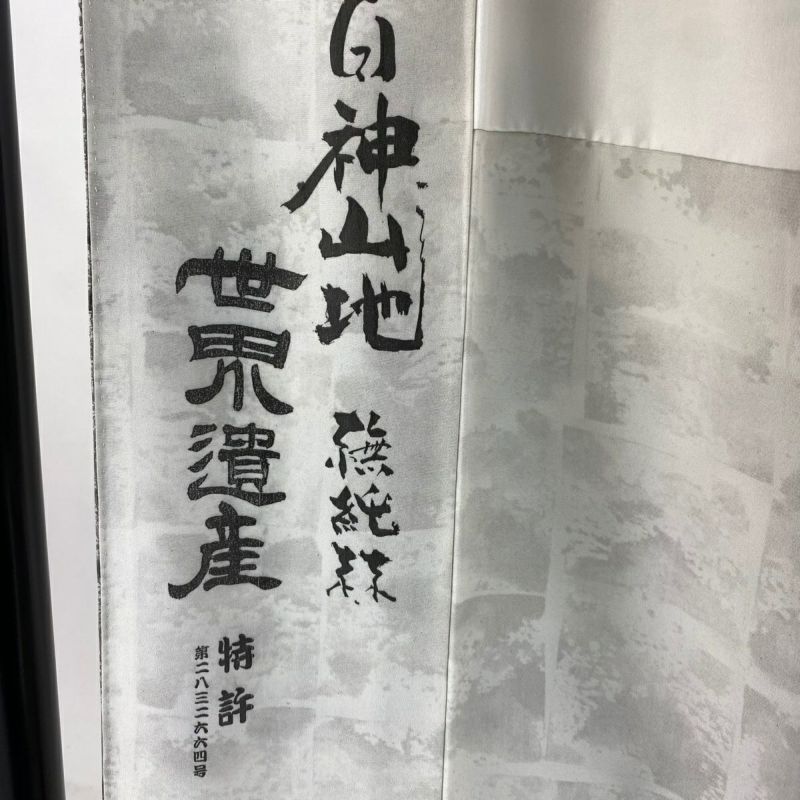 白神山地 橅純林
世界遺産
特許
第二八三二六六四号